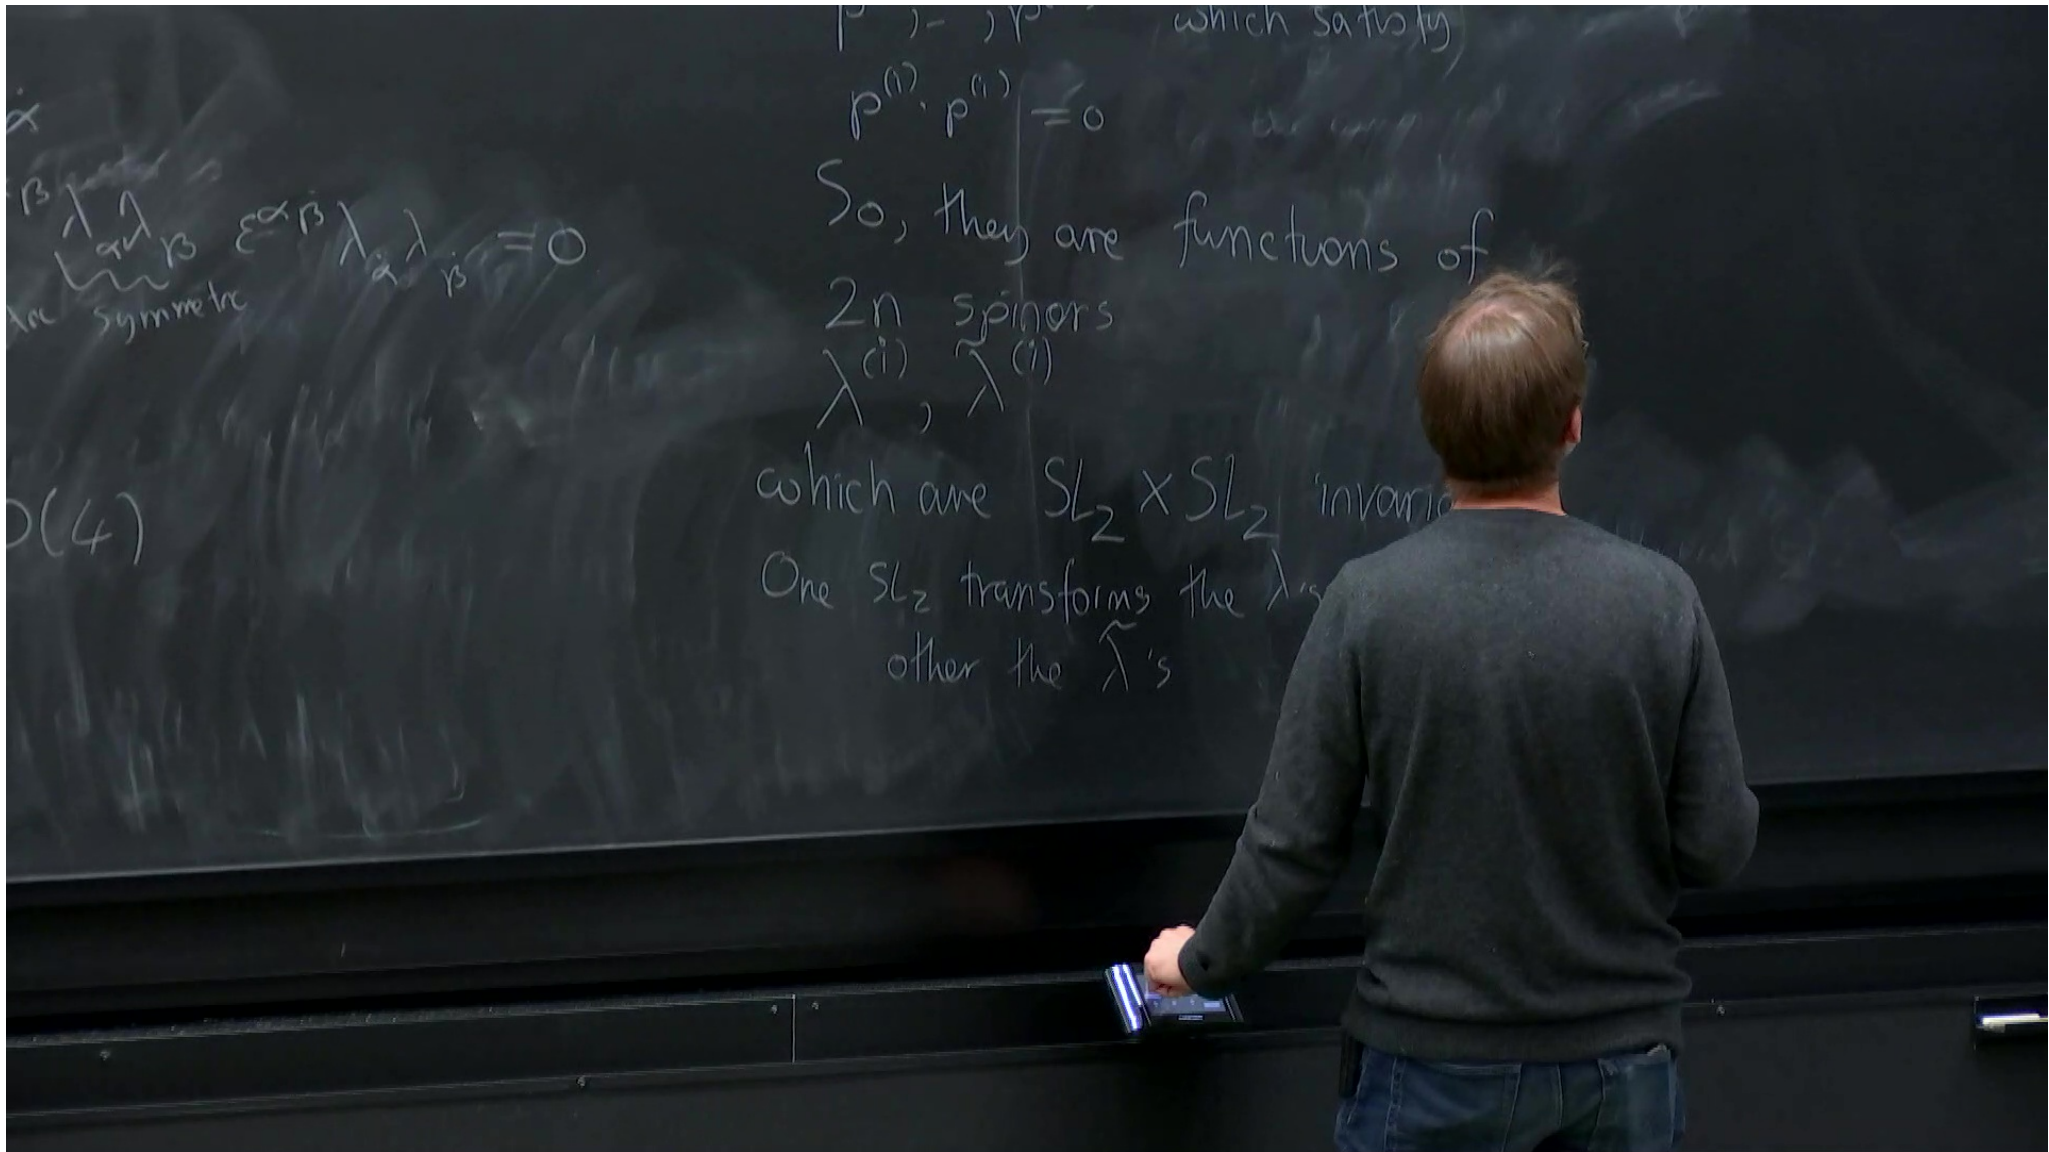 α̇
β λ_α λ_β ε^{α̇β̇} λ_α̇ λ_β̇ = 0
symmetric
O(4)
which satisfy
p^{(i)} · p^{(i)} = 0
So, they are functions of
2n spinors
λ^{(i)} , λ̃^{(i)}
which are SL_2 × SL_2
One SL_2 transforms the λ's
other the λ̃'s